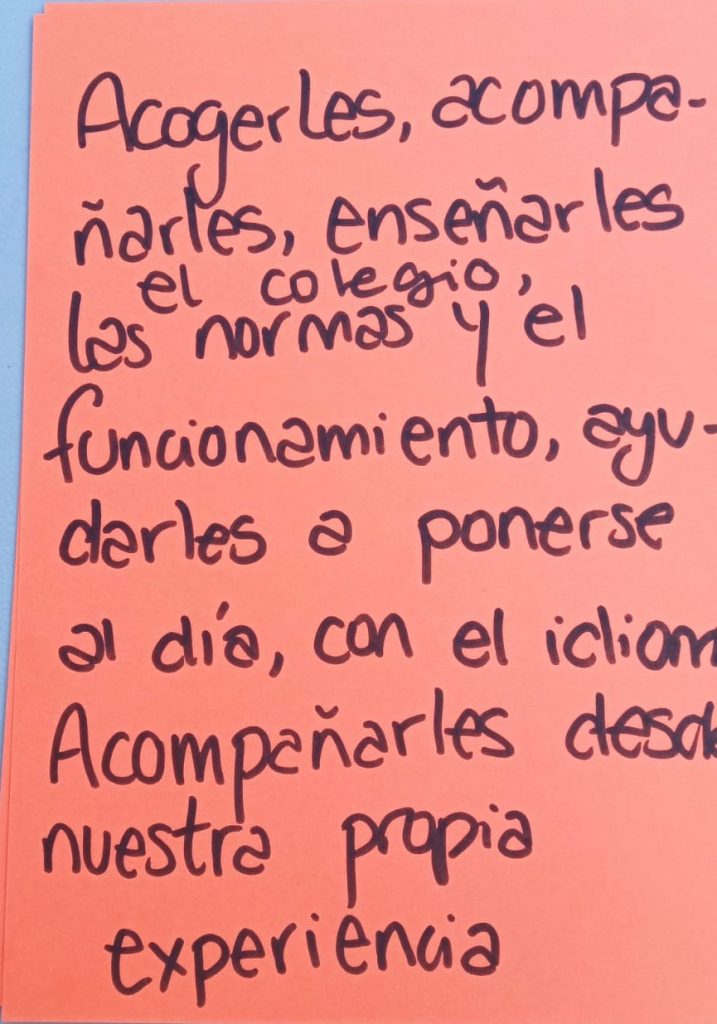 Acogerles, acompa-
ñarles, enseñarles
el colegio,
las normas y el
funcionamiento, ayu-
darles a ponerse
al día, con el idiom
Acompañarles desde
nuestra propia
experiencia